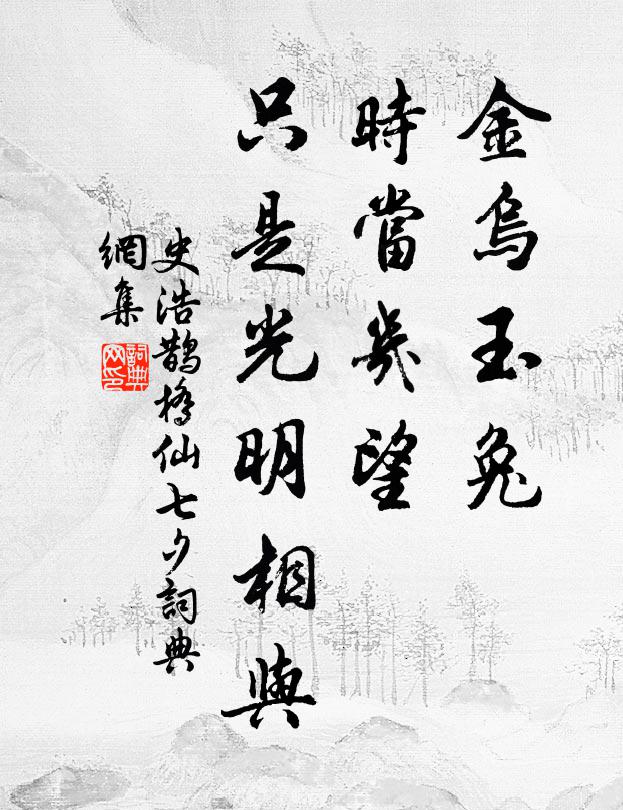 金烏玉兔
時當幾望
只是光明相與
史浩鵲橋仙七夕詞典
網集
詞典
网印